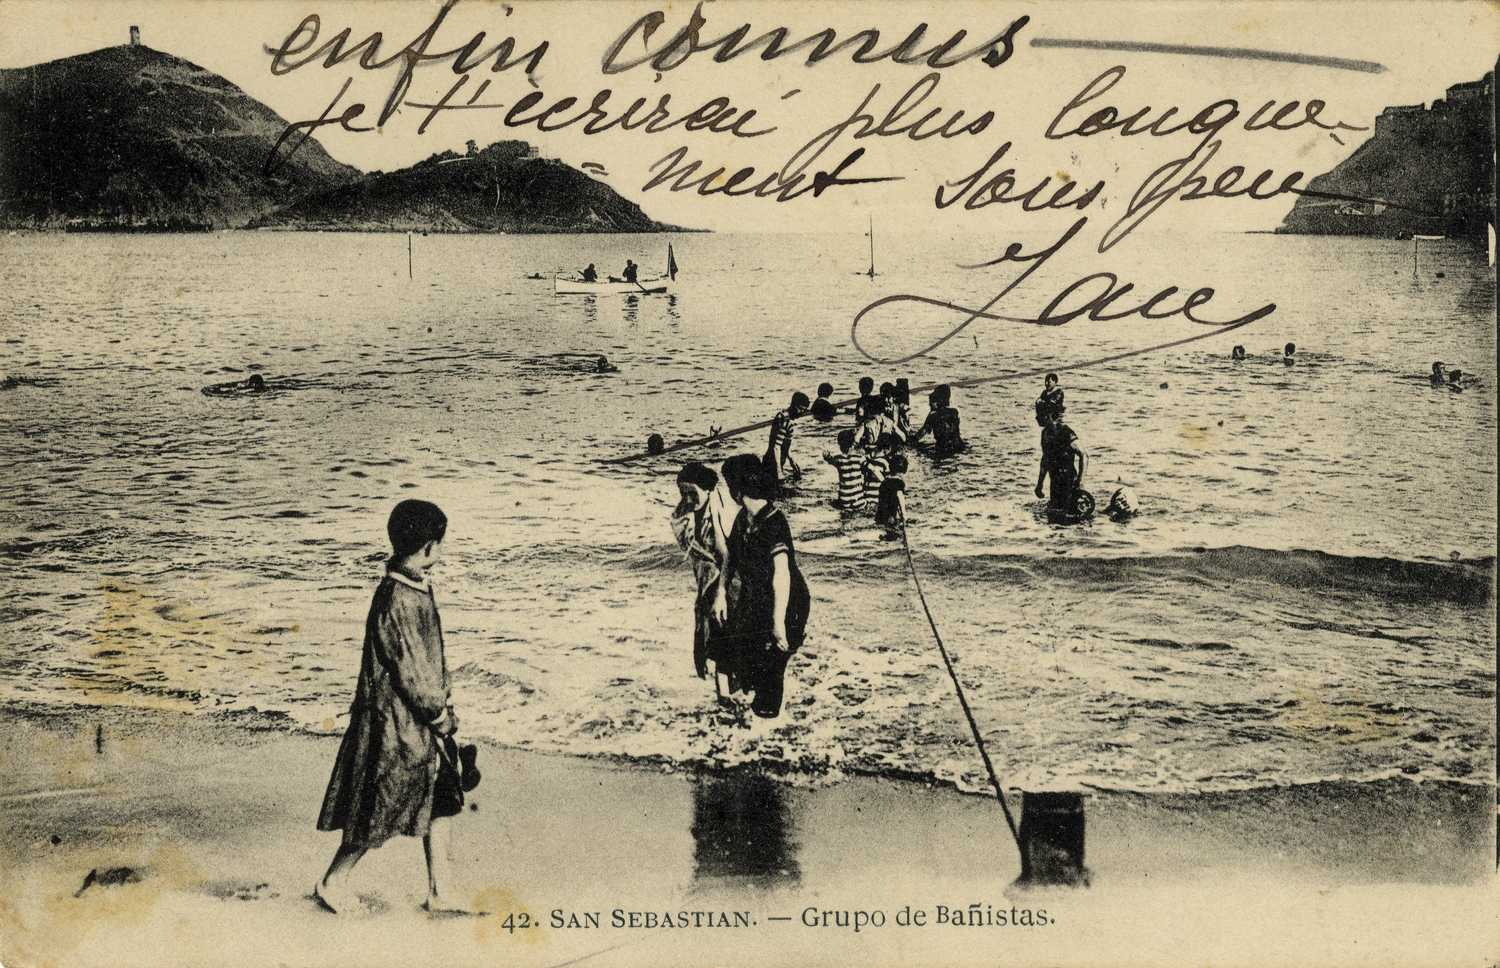 enfin connus —
je t'écrirai plus longue-
= ment sous peu
Jane
42. SAN SEBASTIAN. — Grupo de Bañistas.